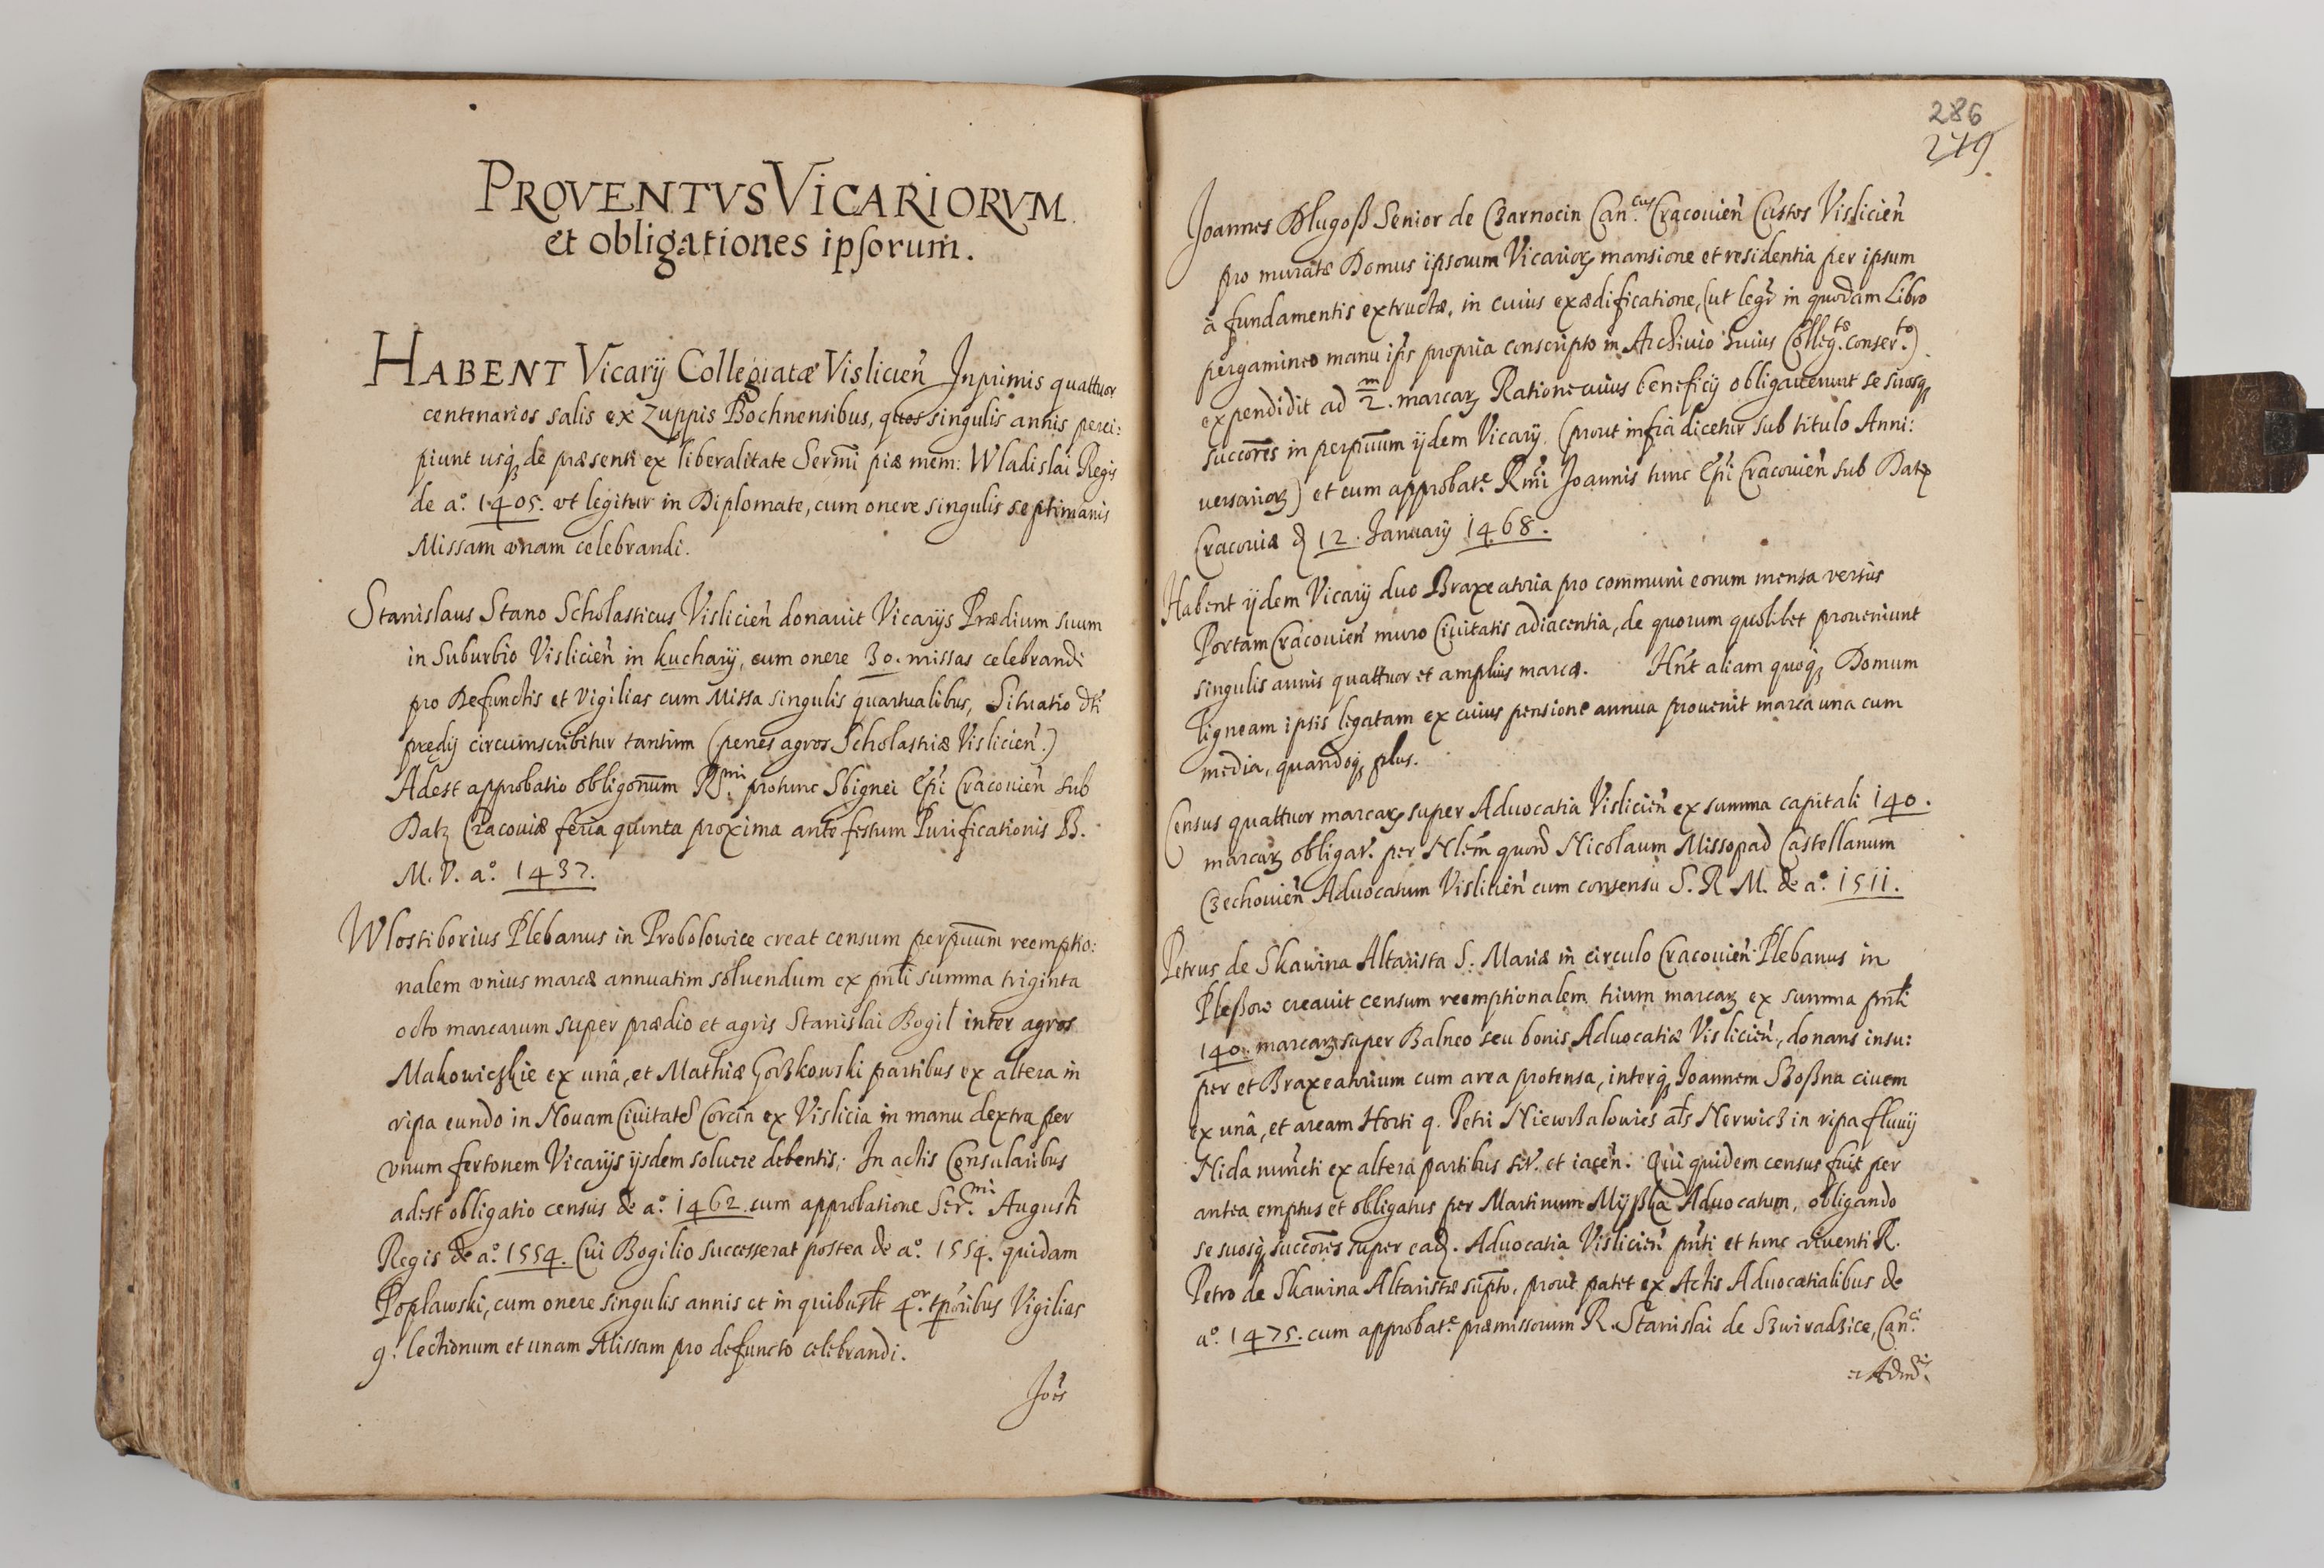 PROVENTVS VICARIORVM
et obligationes ipsorum.
HABENT Vicarij Collegiatæ Vislicień Inprimis quattuor
centenarios salis ex Zuppis Bochnensibus, quos singulis annis perci:
piunt usq₃ de præsenti ex liberalitate Serm̄i piæ mem: Wladislai Regis
de a°. 1405. vt legitur in Diplomate, cum onere singulis septimanis
Missam vnam celebrandi.
Stanislaus Stano Scholasticus Vislicień donauit Vicarijs Prædium suum
in Suburbio Vislicień in kuchary, cum onere 30. missas celebrandi
pro Defunctis et vigilias cum Missa singulis quartualibus, Situatio dti
predij circumscribitur tantum (penes agros Scholastriæ Vislicień.)
Adest approbatio obligonum R.mi protunc Sbignei Epi Cracouień sub
Datz Cracouiæ feria quinta proxima ante festum Purificationis B.
M. V. a°. 1437.
Wlostiborius Plebanus in Probolowice creat censum perpuum reemptio:
nalem vnius marcæ annuatim soluendum ex pńti summa triginta
octo marcarum super prædio et agris Stanislai Bogil inter agros
Makowiczkie ex unâ, et Mathiæ Gorzkowski partibus ex altera in
ripa eundo in Nouam Ciuitatē Corcin ex Vislicia in manu dextra per
vnum fertonem Vicarijs ijsdem soluere debentis; In actis Consularibus
adest obligatio census de a°. 1462. cum approbatione Ser.mi Augusti
Regis de a°. 1554. Cui Bogilio successerat postea de a°. 1554. quidam
Popławski, cum onere singulis annis et in quibuslt 4.or tporibus Vigilias
9. lectionum et unam Missam pro defuncto celebrandi.
Joés
286
279.
Joannes Dlugoß Senior de Czarnocin Can.cus Cracouień Custos Vislicień
pro muratæ Domus ipsorum Vicarioꝝ mansione et residentia per ipsum
à fundamentis extructæ, in cuius exædificatione, (ut legr in quodam Libro
pergamineo manu ipsis propria conscripto in Archiuio huius Colleg.tæ conser.to)
expendidit ad m/2. marcaꝝ Ratione cuius beneficij obligauerunt se suosq₃
succores in perpuum ijdem Vicarij. (prout infra dicetur sub titulo Anni:
versarioꝝ) et cum approbat.e Rm̄i Joannis tunc Epi Cracouień sub Datz
Cracouiæ d 12. January 1468.
Habent ijdem Vicarij duo Braxeatoria pro communi eorum mensa versus
Portam Cracouień muro Ciuitatis adiacentia, de quorum quolibet proueniunt
singulis annis quattuor et amplius marcæ. Hńt aliam quoq₃ Domum
ligneam ipsis legatam ex cuius pensione annua prouenit marca una cum
media, quandoq₃ plus.
Census quattuor marcaꝝ super Aduocatia Vislicień ex summa capitali 140.
marcaꝝ obligat. per Nlem̄ quond Nicolaum Missopad Castellanum
Czechouień Aduocatum Vislicień cum consensu S. R. M. de a°. 1511.
Petrus de Skawina Altarista S. Mariæ in circulo Cracouień Plebanus in
Pleßow creauit censum reemptionalem trium marcaꝝ ex summa pńti
140. marcaꝝ super Balneo seu bonis Aduocatiæ Vislicień, donans insu:
per et Braxeatorium cum area protensa, interq₃ Joannem Szoßna ciuem
ex unâ, et aream Horti q. Petri Niewrzalowies als Nerwicz in ripa fluuij
Nida nuncti ex altera partibus sit. et iacén. Qui quidem census fuit per
antea emptus et obligatus per Martinum Myßka Aduocatum, obligando
se suosq₃ succores super ead. Aduocatia Vislicień pńti et tunc viuenti R.
Petro de Skawina Altaristæ supto, prout patet ex Actis Aduocatialibus de
a°. 1475. cum approbat.e præmissorum R. Stanislai de Swiradzice, Can.ci